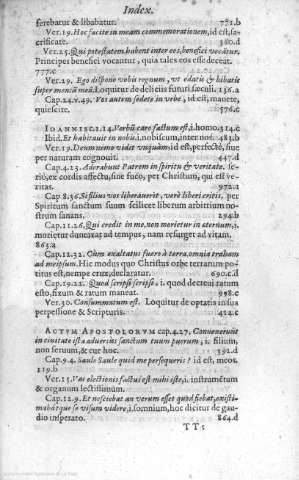 Index.
ferebatur & libabatur. 771.b
Ver.19. Hoc facite in meam commemorationem, id est, sa-
crificate. 380.d
Ver.25. Qui potestatem habent inter eos, benefici vocātur.
Principes benefici vocantur, quia tales esse debeāt.
777.c
Ver.29. Ego dispono vobis regnum, vt edatis & bibatis
super mensā meā. Loquitur de deliciis futuri sæculi. 136.a
Cap.24.v.49. Vos autem sedete in vrbe, id est, manete,
quiescite. 576.c
IOANNIS c.1.14. Verbū caro factum est, i. homo. 314.c
Ibid. Et habitauit in nobis, i. nobiscum, inter nos. 483.b
Ver.19. Deum nemo vidit vnquàm, id est, perfectè, siue
per naturam cognouit. 447.d
Cap.4.23. Adorabunt Patrem in spiritu & veritate. Se-
riò, ex cordis affectu, sine fuco, per Christum, qui est ve-
ritas. 972.a
Cap 8.36. Si filius vos liberauerit, verè liberi eritis. per
Spiritum sanctum suum scilicet liberum arbitrium no-
strum sanans. 294.b
Cap.11.26. Qui credit in me, non morietur in æternum, i.
morietur duntaxat ad tempus, nam resurget ad vitam.
863.a
Cap.12.32. Cùm exaltatus fuero à terra, omnia traham
ad meipsum. Hic modus quo Christus orbe terrarum po-
titus est, nempe crux, declaratur. 690.c.d
Cap.19.22. Quod scripsi scripsi. i. quod decreui ratum
esto, fixum & ratum maneat. 998.c
Ver.30. Consummatum est. Loquitur de optatis in sua
perpessione & Scripturis. 454.c
ACTVM APOSTOLORVM cap.4.27. Conuenerunt
in ciuitate ista aduersùs sanctum tuum puerum, i. filium,
non seruum, &c ut hoc. 392.d
Cap.9.4. Saule Saule quid me persequeris? id est, meos.
119.b
Ver.15. Vas electionis factus est mihi iste, i. instrumētum
& organum lectissimum.
Cap.12.9. Et nesciebat an verum esset quod fiebat, existi-
mabátque se visum videre, i. somnium, hoc dicitur de gau-
dio insperato. 864.d
TT 1